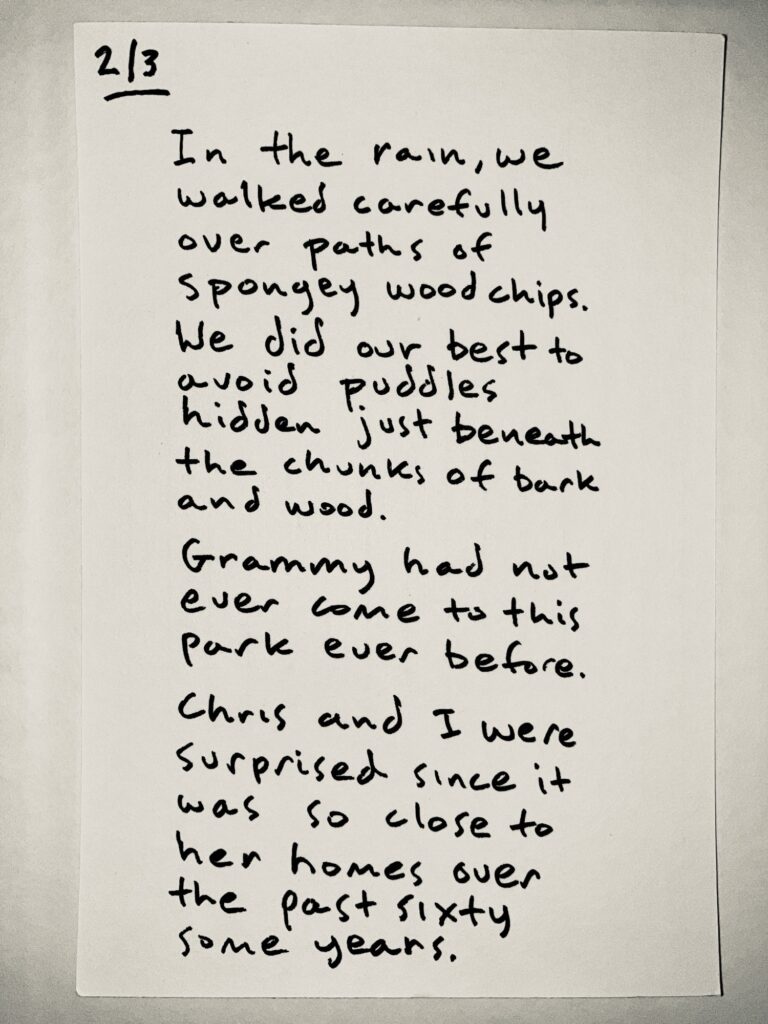 2/3
In the rain, we
walked carefully
over paths of
spongey wood chips.
We did our best to
avoid puddles
hidden just beneath
the chunks of bark
and wood.
Grammy had not
ever come to this
park ever before.
Chris and I were
surprised since it
was so close to
her homes over
the past sixty
some years.